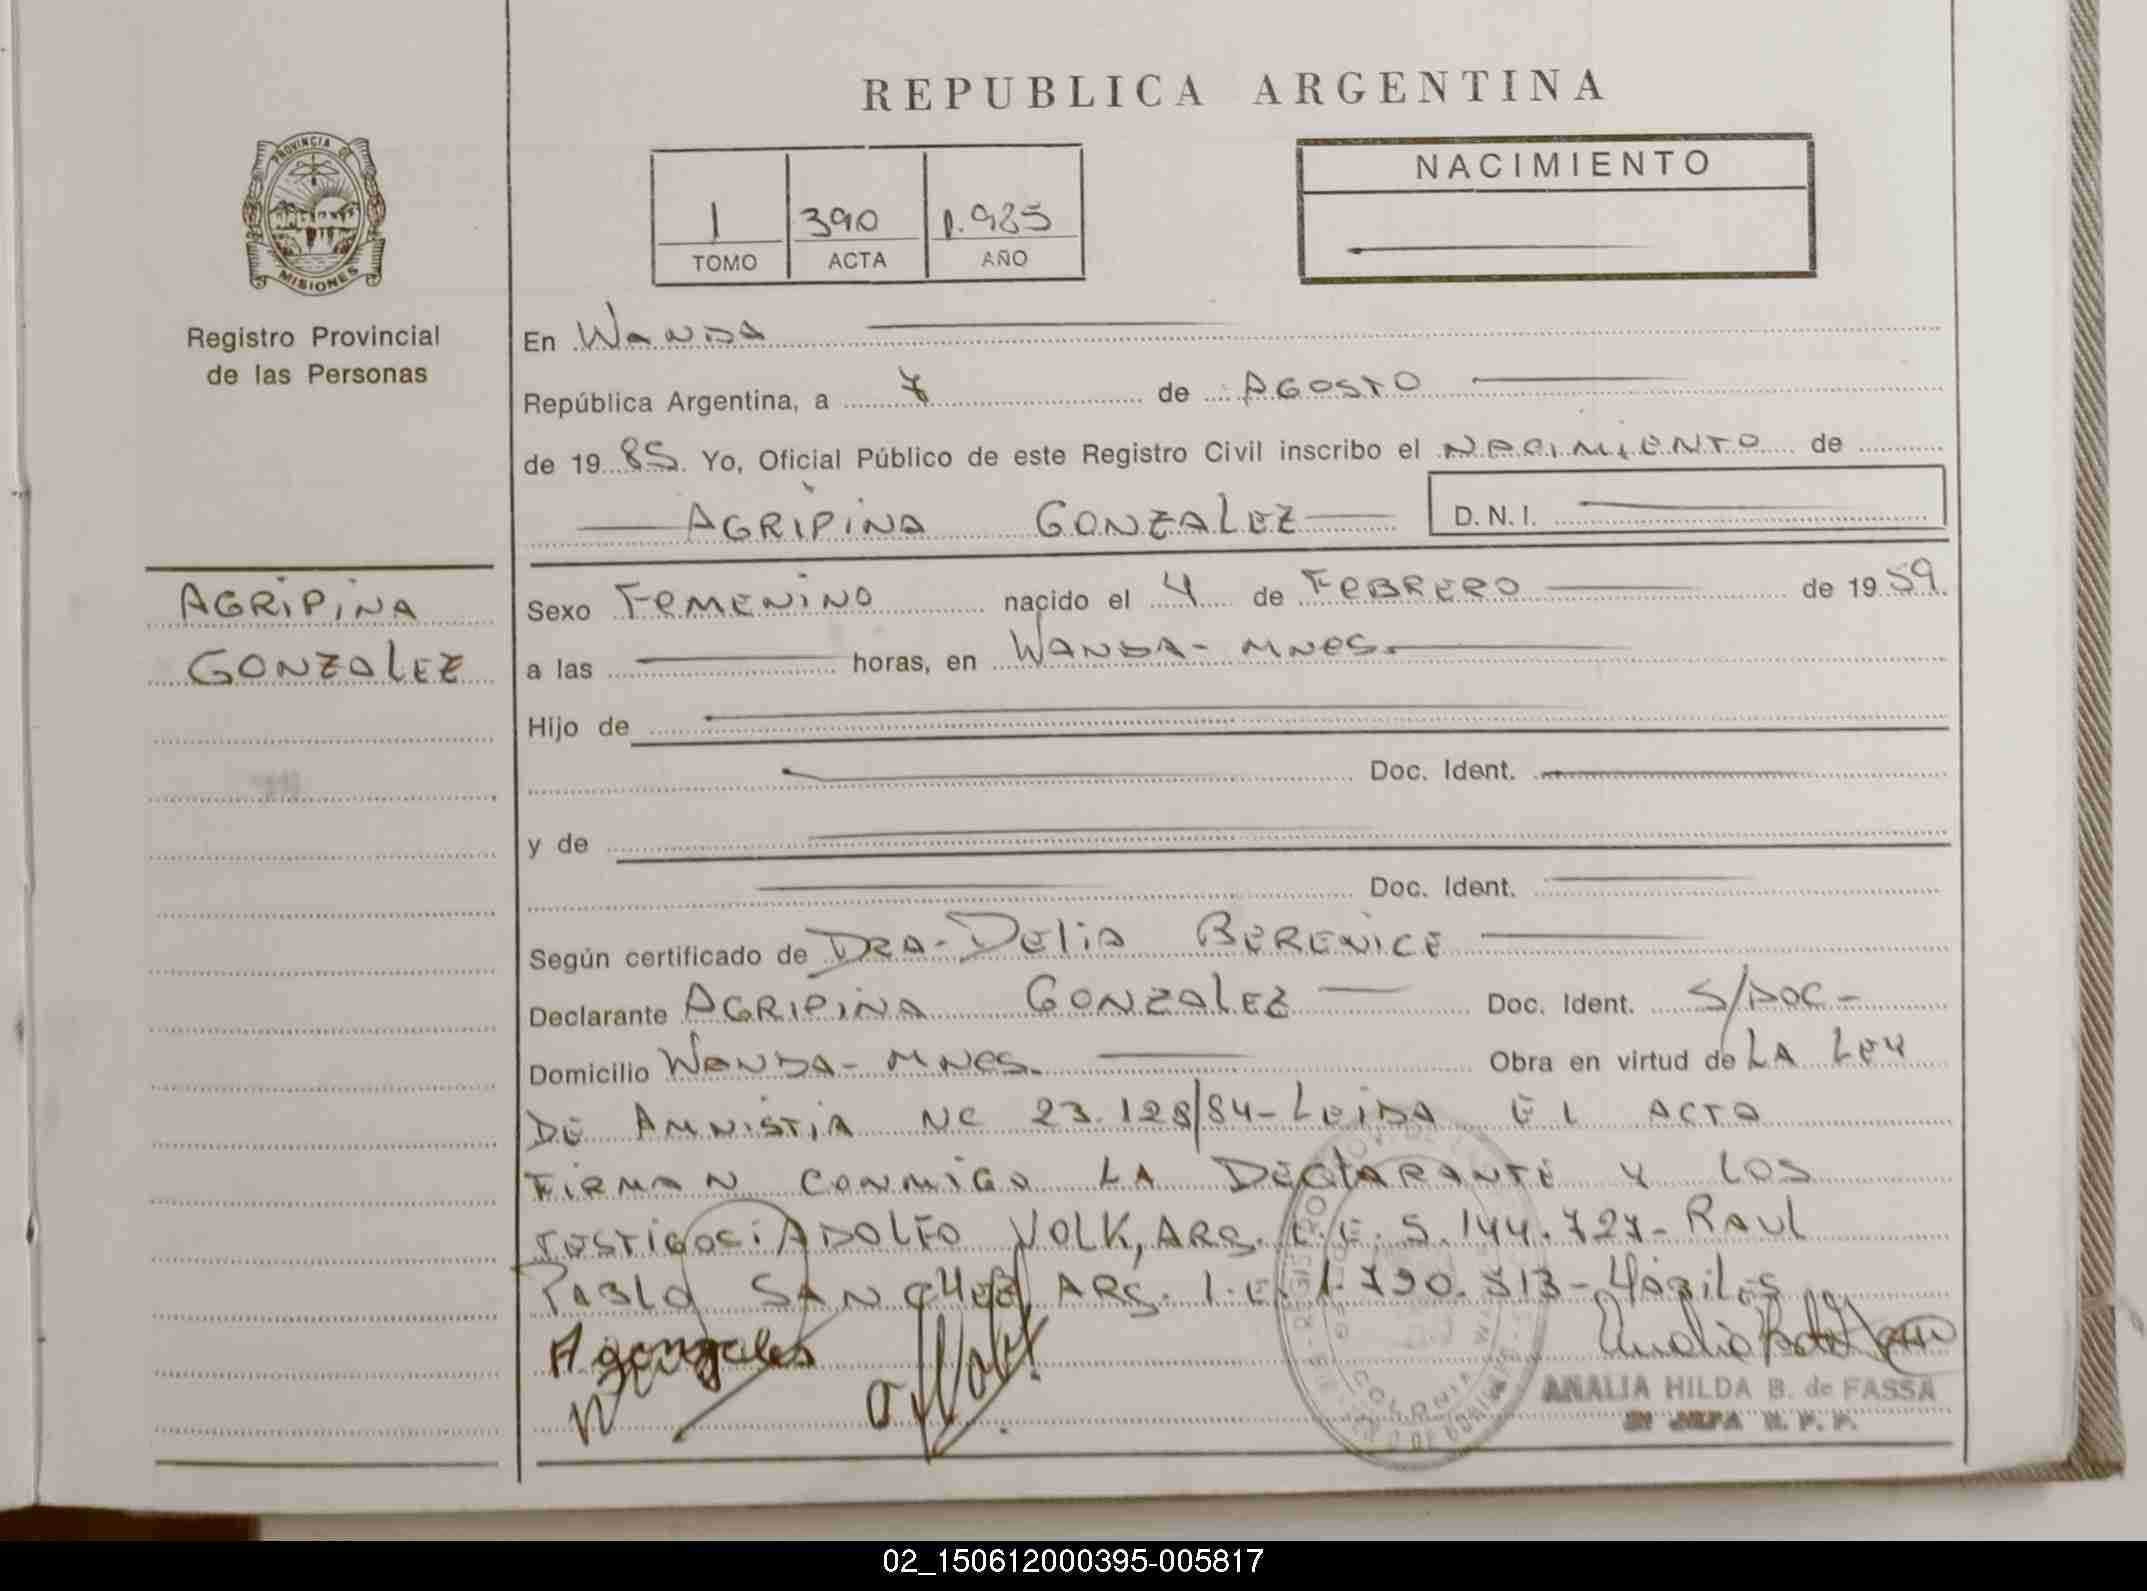 REPUBLICA ARGENTINA
PROVINCIA DE
MISIONES
Registro Provincial
de las Personas
1 390 1.985
TOMO ACTA AÑO
NACIMIENTO
En Wanda
República Argentina, a 7 de AGOSTO
de 1985. Yo, Oficial Público de este Registro Civil inscribo el NACIMIENTO de
AGRIPINA GONZALEZ D.N.I.
AGRIPINA
GONZALEZ
Sexo FEMENINO nacido el 4 de FEBRERO de 1959.
a las horas, en WANDA - MNES.
Hijo de
Doc. Ident.
y de
Doc. Ident.
Según certificado de DRA - DELIA BERENICE
Declarante AGRIPINA GONZALEZ Doc. Ident. S/DOC -
Domicilio WANDA - MNES. Obra en virtud de LA LEY
DE AMNISTIA NC 23.128/84 - LEIDA EL ACTA
FIRMAN CONMIGO LA DECLARANTE Y LOS
TESTIGOS: ADOLFO VOLK, ARG. L.E. 5.144.727 - RAUL
PABLO SANCHEZ ARG. L.E. 1.790.313 - HÁBILES
A gonzales
ANALIA HILDA B. de FASSA
R. P. P.
COLONIA WANDA
02_150612000395-005817